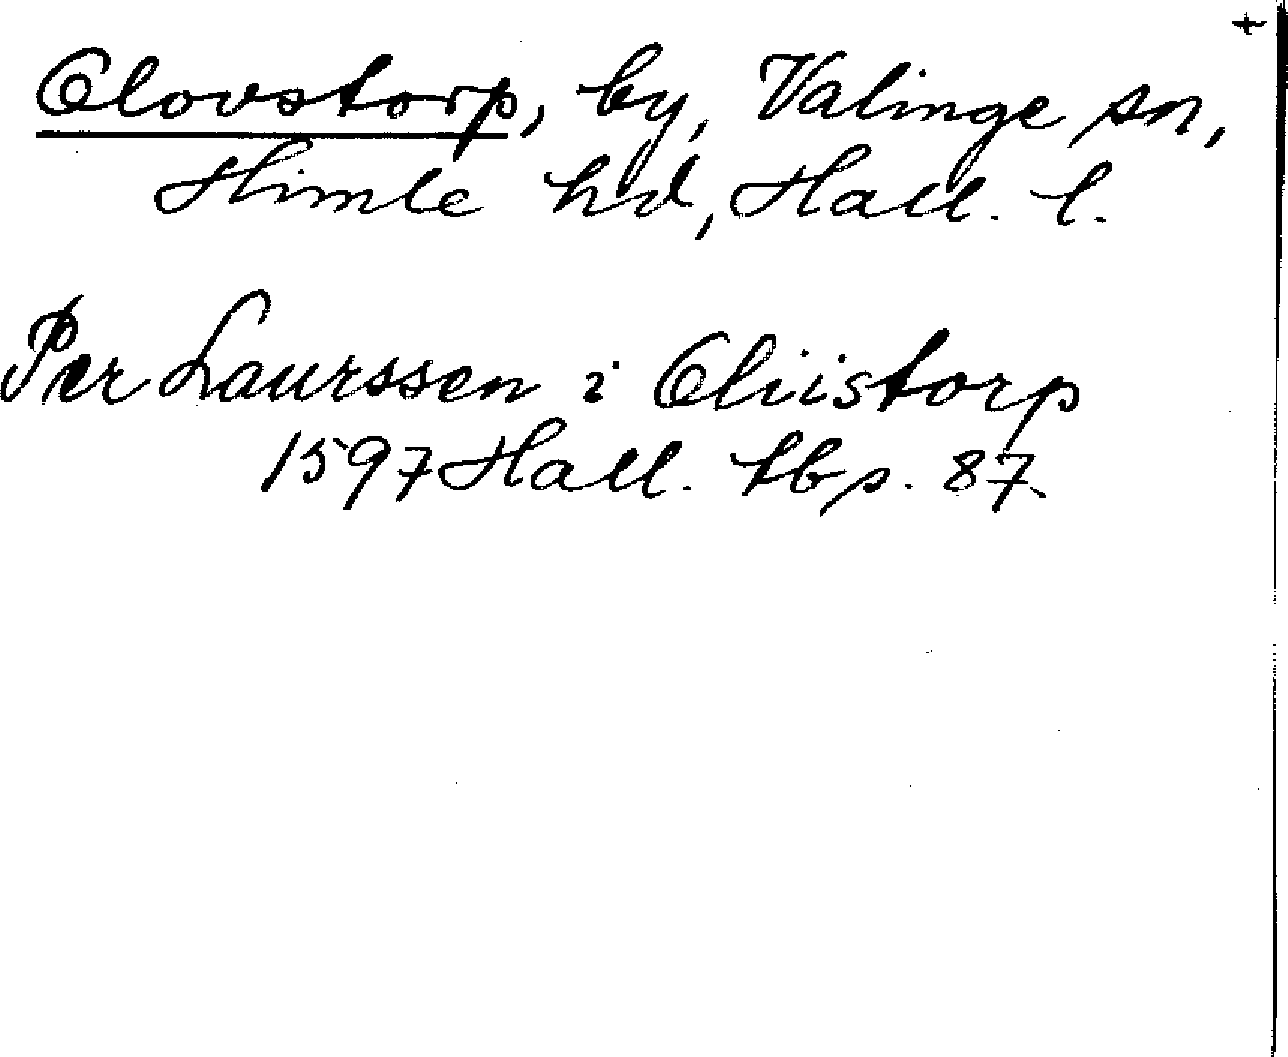 +
Olovstorp, by, Valinge sn,
Himle hd, Hall. l.
Per Laurssen i Oliistorp
1597 Hall. tb s. 87.